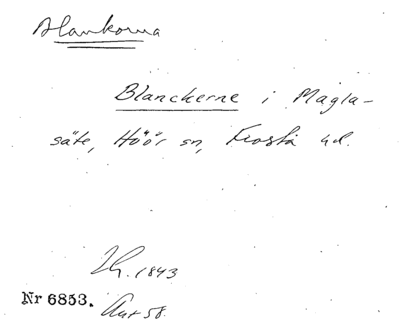 Blankorna
Blanckerne i Magla-
säte, Höör sn, Frosta hd.
Lh. 1843
Nr 6853.
Akt 58.